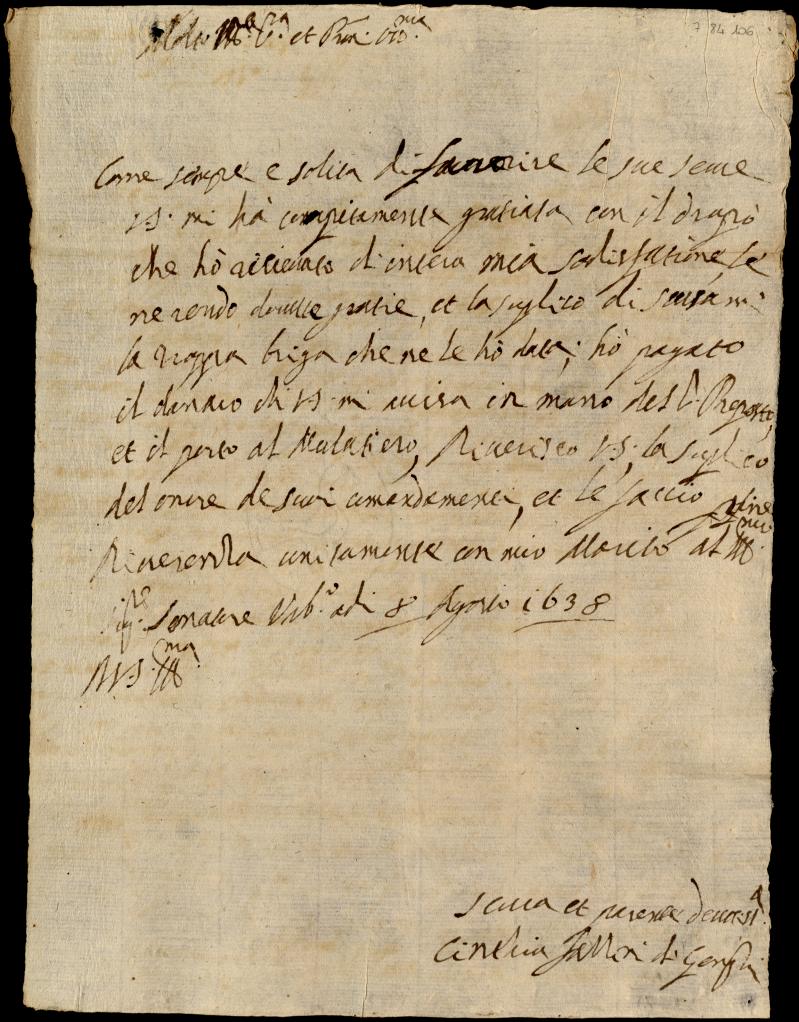 7 84 106
Molto Ill.re S.ra et Pron. Oss.ma
Come sempre e solita di favorire le sue serve
V.S. mi hà compitamente gratiata con il drapò
che hò riceuuto di intera mia sodisfatione, le
ne rendo douute gratie, et la suplico di scusarmi
la troppa briga che ne le hò data; hò pagato
il danaro che V.S. mi auisa in mano del S.r Preposto,
et il porto al Mulatiero, Riuerisco V.S., la suplico
del onore de suoi comandamenti, et le faccio
Riuerenza unitamente con mio Marito al Ill.mo
Sig.re Senatore Urb.o adi 8 Agosto 1638
D V.S. Ill.ma
Serua et parente deuotis.a
Cinthia